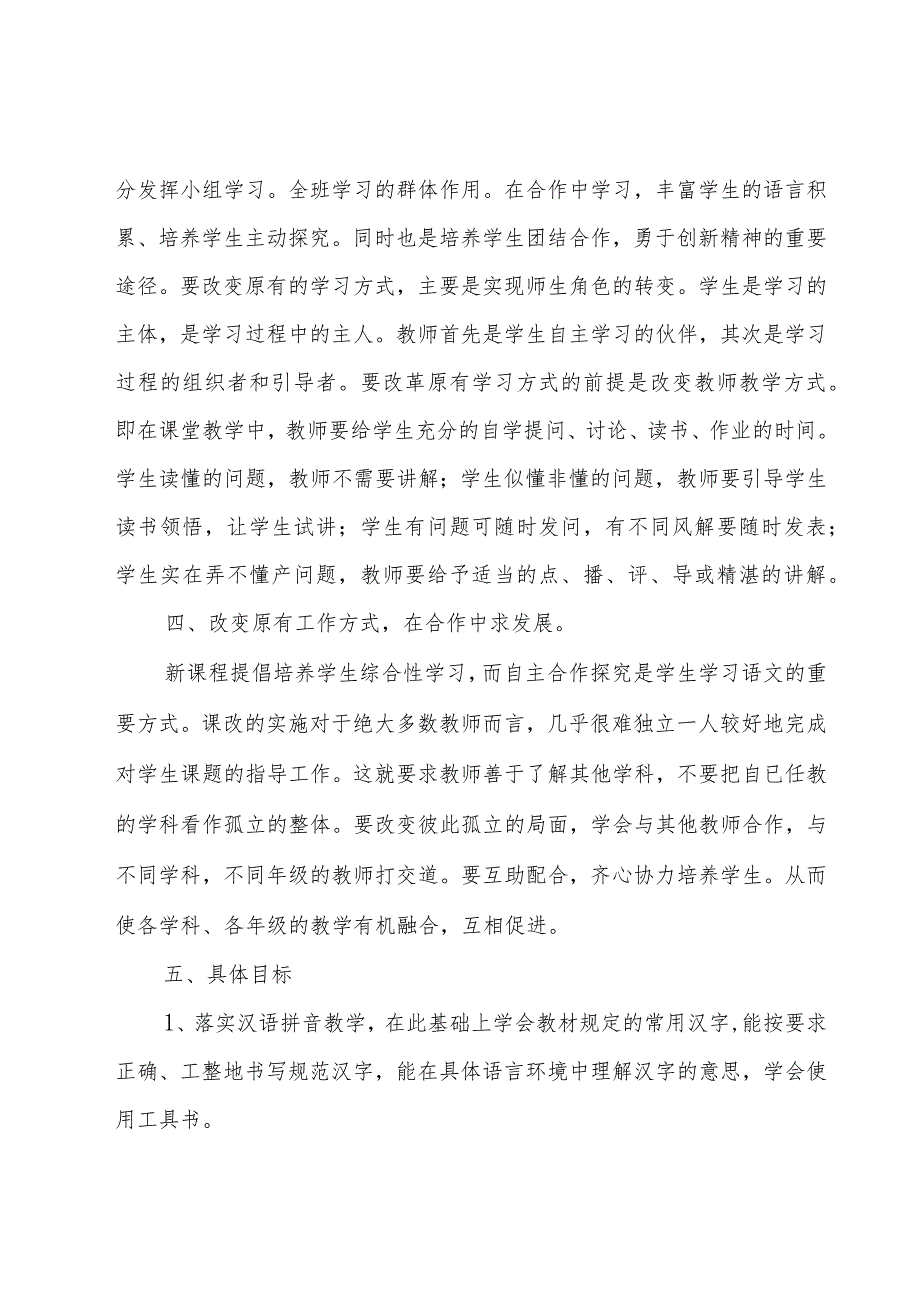 分发挥小组学习。全班学习的群体作用。在合作中学习，丰富学生的语言积
累、培养学生主动探究。同时也是培养学生团结合作，勇于创新精神的重要
途径。要改变原有的学习方式，主要是实现师生角色的转变。学生是学习的
主体，是学习过程中的主人。教师首先是学生自主学习的伙伴，其次是学习
过程的组织者和引导者。要改革原有学习方式的前提是改变教师教学方式。
即在课堂教学中，教师要给学生充分的自学提问、讨论、读书、作业的时间。
学生读懂的问题，教师不需要讲解；学生似懂非懂的问题，教师要引导学生
读书领悟，让学生试讲；学生有问题可随时发问，有不同风解要随时发表；
学生实在弄不懂产问题，教师要给予适当的点、播、评、导或精湛的讲解。
四、改变原有工作方式，在合作中求发展。
新课程提倡培养学生综合性学习，而自主合作探究是学生学习语文的重
要方式。课改的实施对于绝大多数教师而言，几乎很难独立一人较好地完成
对学生课题的指导工作。这就要求教师善于了解其他学科，不要把自已任教
的学科看作孤立的整体。要改变彼此孤立的局面，学会与其他教师合作，与
不同学科，不同年级的教师打交道。要互助配合，齐心协力培养学生。从而
使各学科、各年级的教学有机融合，互相促进。
五、具体目标
1、落实汉语拼音教学，在此基础上学会教材规定的常用汉字,能按要求
正确、工整地书写规范汉字，能在具体语言环境中理解汉字的意思，学会使
用工具书。